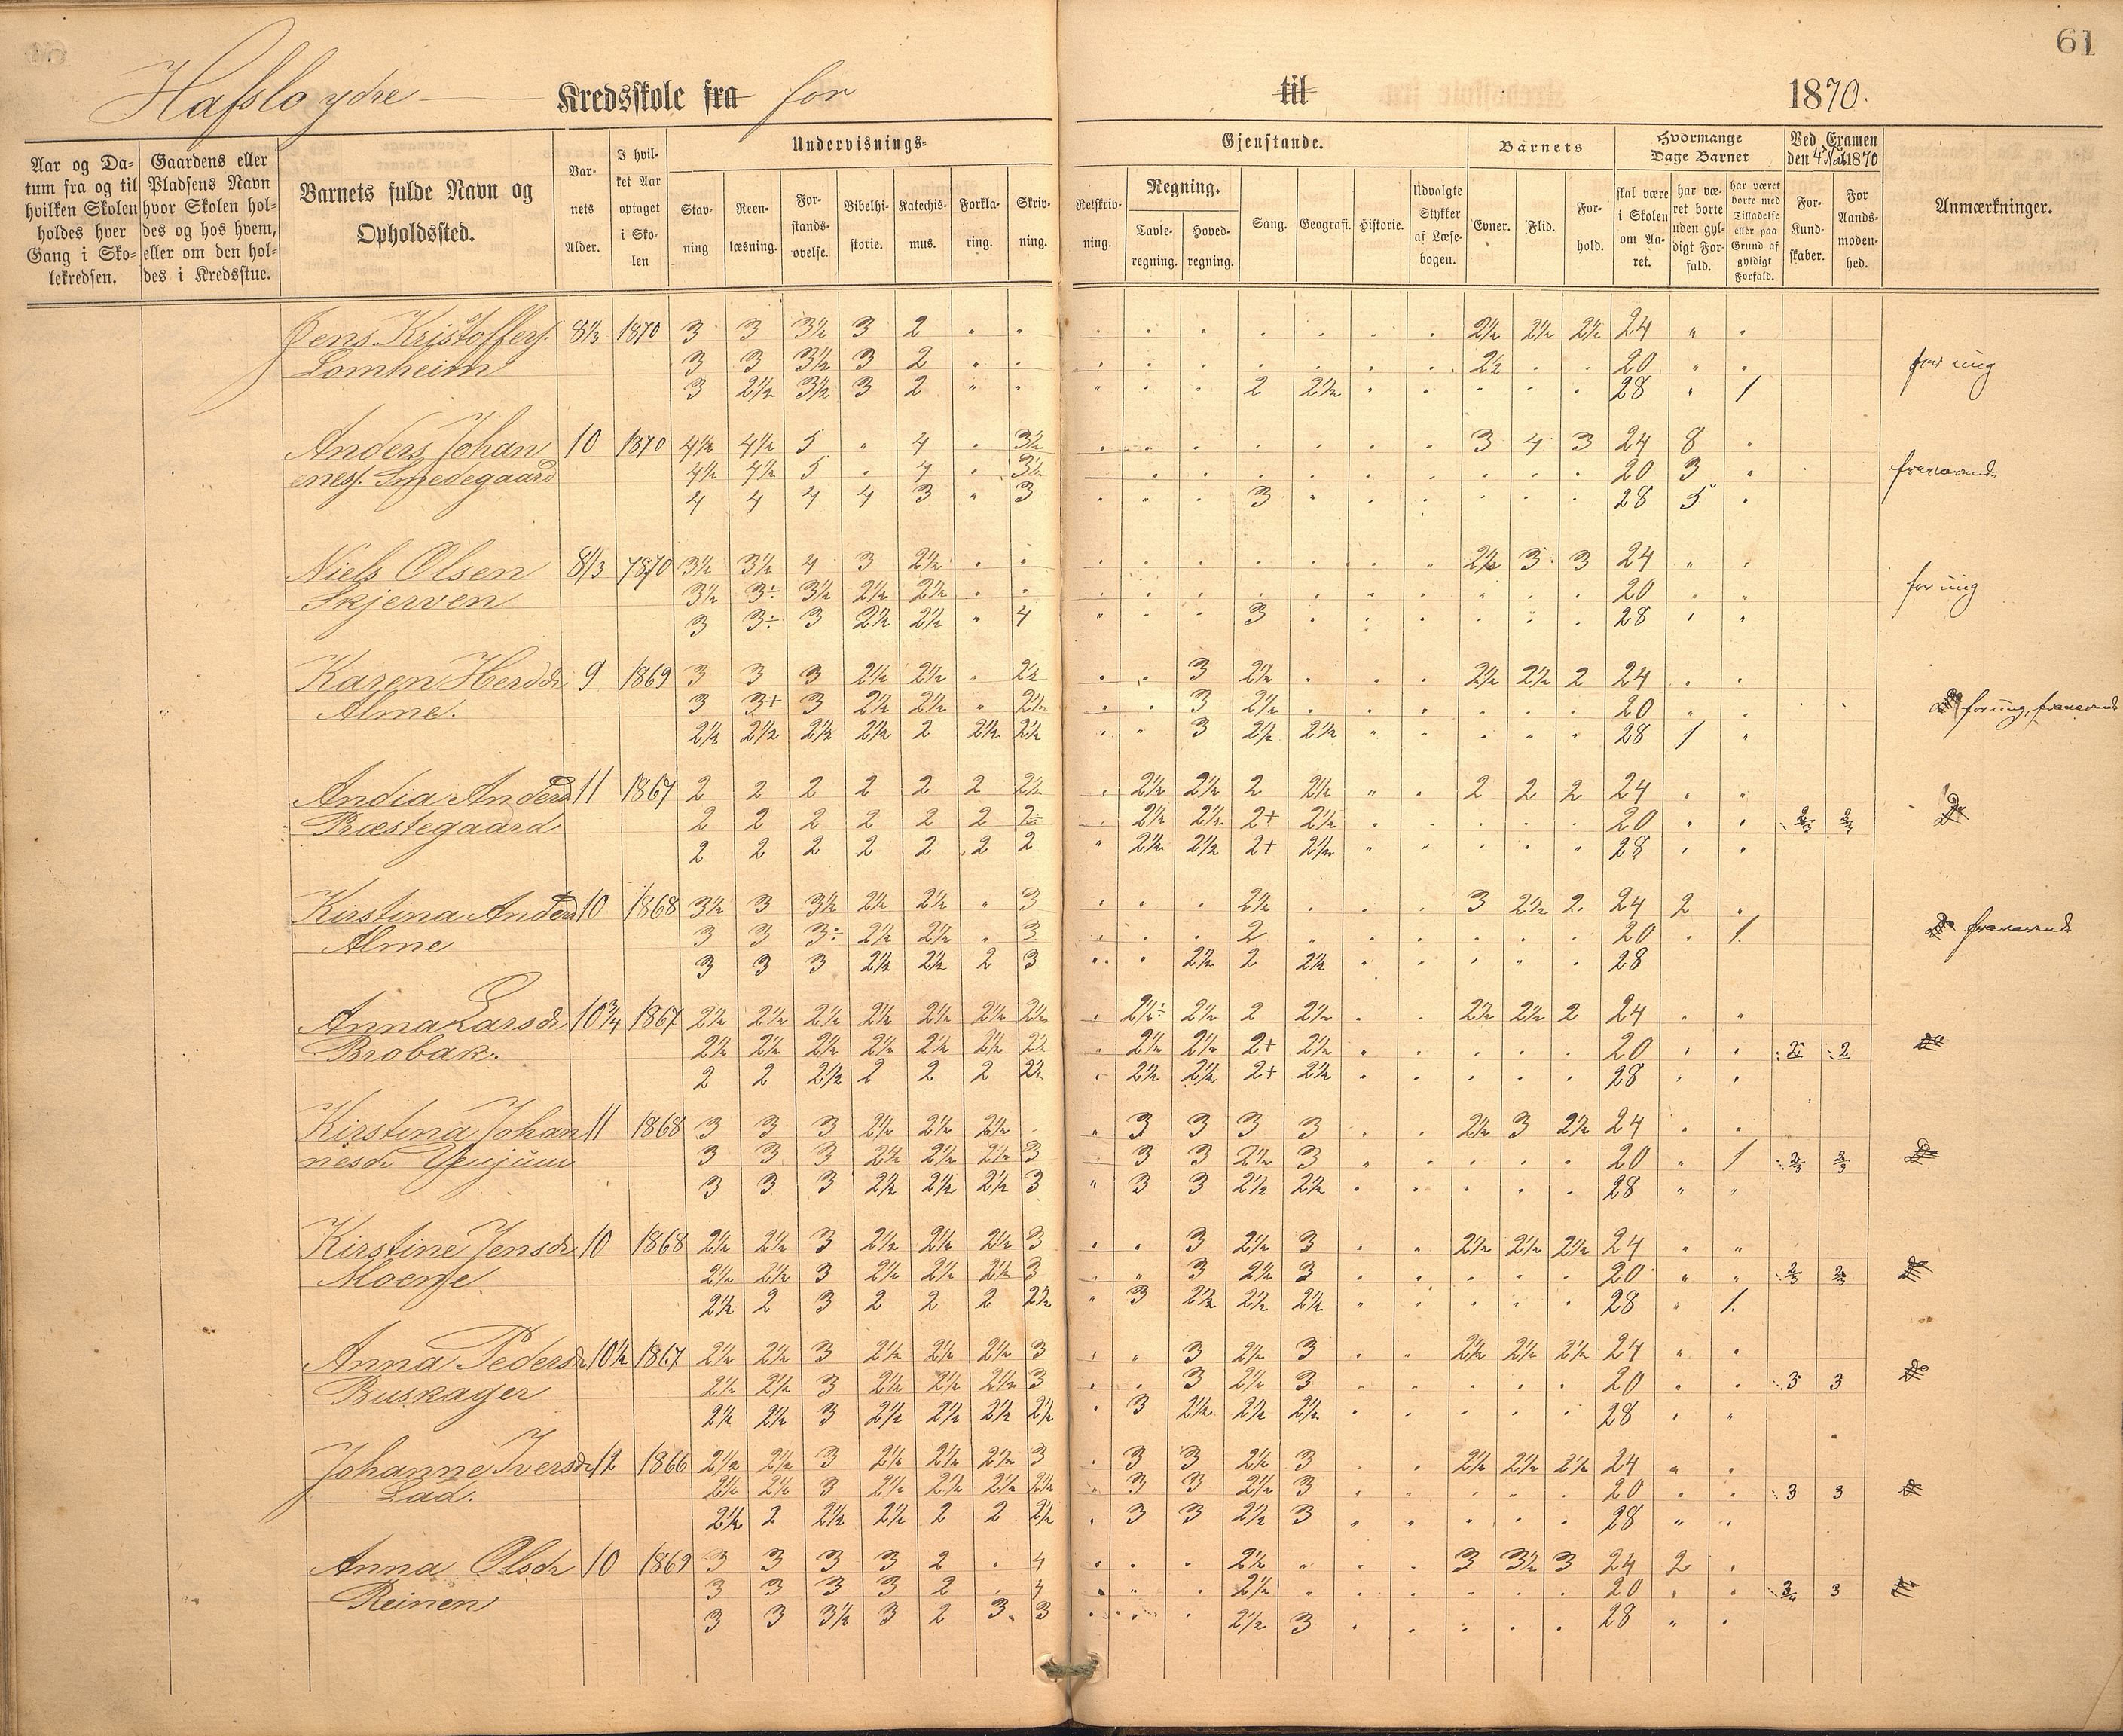 61
Hafslo ydre Kredsskole fra for til 1870.
Aar og Datum fra og til hvilken Skolen holdes hver Gang i Skolekredsen.
Gaardens eller Pladsens Navn hvor Skolen holdes og hos hvem, eller om den holdes i Kredsstue.
Barnets fulde Navn og Opholdssted.
Barnets Alder.
I hvilket Aar optaget i Skolen
Undervisnings-
Stavning
Reenlæsning.
Forstandsøvelse.
Bibelhistorie.
Katechismus.
Forklaring.
Skrivning.
Gjenstande.
Retskrivning.
Regning.
Tavleregning.
Hovedregning.
Sang.
Geografi.
Historie.
Udvalgte Stykker af Læsebogen.
Barnets
Evner.
Flid.
Forhold.
Hvormange Dage Barnet
skal være i Skolen om Aaret.
har været borte uden gyldigt Forfald.
har været borte med Tilladelse eller paa Grund af gyldigt Forfald.
Ved Examen den 4 1870
For Kundskaber.
For Aandsmodenhed.
Anmærkninger.
Jens Kristoffers. 8 1/3 1870 3 3 3½ 3 2 2½ 2½ 2½ 24
Lomheim 3 3 3½ 3 2 2½ 20 for ung
3 2½ 3½ 3 2 2 2½ 28 1
Anders Johan 10 1870 4½ 4½ 5 4 3½ 3 4 3 24 8
ness. Smedegaard 4½ 4½ 5 4 3½ 20 3 fraværende
4 4 4 4 3 3 3 28 5
Niels Olsen 8 1/3 1870 3½ 3½ 4 3 2½ 2½ 3 3 24
Skjerven 3½ 3÷ 3½ 2½ 2½ 20 for ung
3 3÷ 3 2½ 2½ 4 3 28
Karen Herdr. 9 1869 3 3 3 2½ 2½ 2½ 3 2½ 2½ 2½ 2 24
Alme. 3 3+ 3 2½ 2½ 2½ 3 2½ 20 for ung, fraværende
2½ 2½ 2½ 2½ 2 2½ 2½ 3 2½ 2½ 28 1
Andia Andersd 11 1867 2 2 2 2 2 2 2½ 2½ 2½ 2 2½ 2 2 2 24
Præstegaard 2 2 2 2 2 2 2÷ 2½ 2½ 2+ 2½ 20
2 2 2 2 2 2 2 2½ 2½ 2+ 2½ 28
Kirstina Andersd 10 1868 3½ 3 3½ 2½ 2½ 3 2½ 3 2½ 2 24 2
Alme 3 3 3÷ 2½ 2½ 3 2 20 1 fraværende
3 3 3 2½ 2½ 2 3 2½ 2 2½ 28
Anna Larsdr 10¾ 1867 2½ 2½ 2½ 2½ 2½ 2½ 2½ 2½÷ 2½ 2 2½ 2½ 2½ 2 24
Brobak. 2½ 2½ 2½ 2½ 2½ 2½ 2½ 2½ 2½ 2+ 2½ 20 2
2 2 2½ 2 2 2 2½ 2½ 2½ 2+ 2½ 28
Kirstina Johan 11 1868 3 3 3 2½ 2½ 2½ 3 3 3 3 2½ 3 2½ 24
nesdr 3 3 3 2½ 2½ 2½ 3 3 3 2½ 3 20 1 2/3 2/3
3 3 3 2½ 2½ 2½ 3 3 3 2½ 2½ 28
Kirstine Jensdr 10 1868 2½ 2½ 3 2½ 2½ 2½ 3 3 2½ 3 2½ 2½ 2½ 24
Moene 2½ 2½ 3 2½ 2½ 2½ 3 3 2½ 3 20 2/3 2/3
2½ 2 3 2 2 2 2½ 3 2½ 2½ 2½ 28 1
Anna Pedersdr 10½ 1867 2½ 2½ 3 2½ 2½ 2½ 3 3 2½ 3 2½ 2½ 2½ 24
Buskager 2½ 2½ 3 2½ 2½ 2½ 3 3 2½ 3 20 3 3
2½ 2½ 3 2½ 2½ 2½ 2½ 3 2½ 2½ 2½ 28
Johanne Iversdr 12 1866 2½ 2½ 3 2½ 2½ 2½ 3 3 3 2½ 3 2½ 2½ 2½ 24
Lad. 2½ 2½ 3 2½ 2½ 2½ 2½ 3 3 2½ 3 20 3 3
2½ 2 2½ 2½ 2 2 2½ 3 3 2½ 3 28
Anna Olsdr 10 1869 3 3 3 3 2 4 2½ 3 3½ 3 24 2
Reinen 3 3 3 3 2 4 2½ 20 3
3 3 3½ 3 2 3 3 2½ 3 28